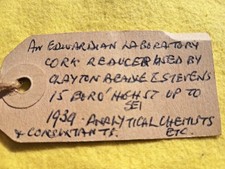 AN EDWARDIAN LABORATORY
CORK REDUCER USED BY
CLAYTON BEADLE & STEVENS
15 BORO' HIGH ST UP TO
SE1
1939. ANALYTICAL CHEMISTS
& CONSULTANTS. ETC.